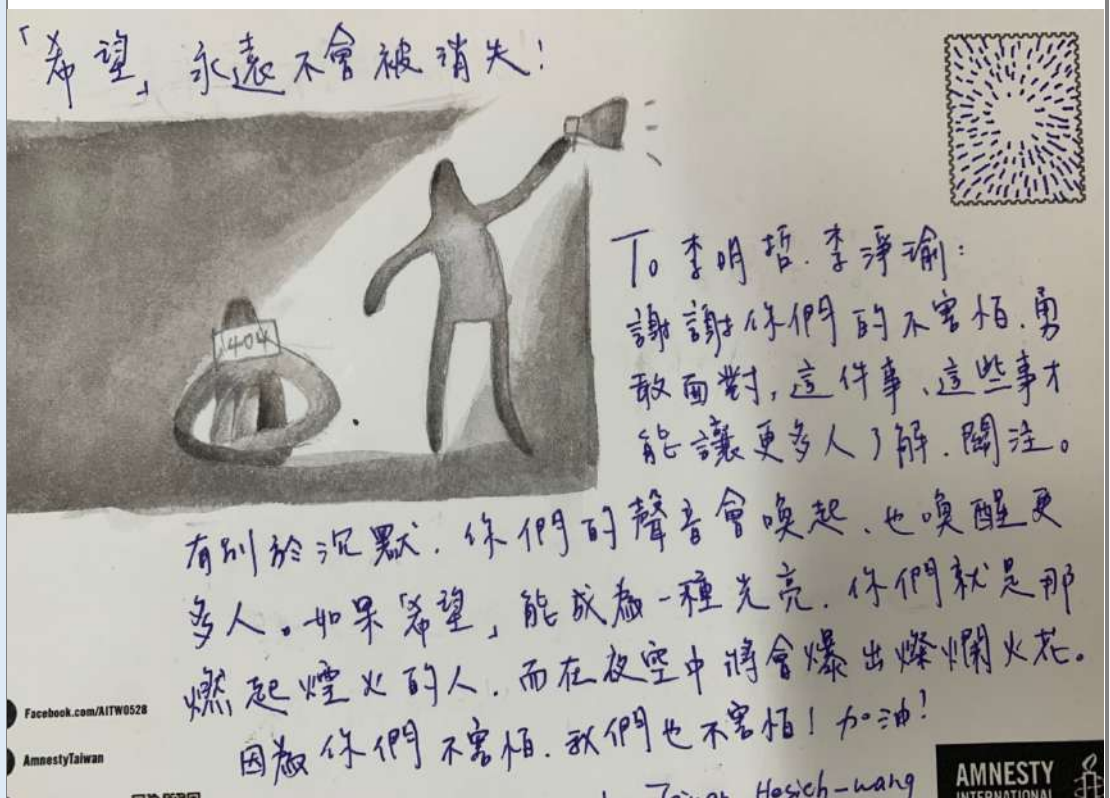 「希望」永遠不會被消失！
404
To 李明哲.李淨瑜：
謝謝你們的不害怕.勇
敢面對,這件事、這些事才
能讓更多人了解.關注。
有別於沉默.你們的聲音會喚起、也喚醒更
多人。如果「希望」能成為一種光亮.你們就是那
燃起煙火的人.而在夜空中將會爆出燦爛火花。
因為你們不害怕.我們也不害怕！加油！
Facebook.com/AITW0528
AmnestyTaiwan
Hesich-wang
AMNESTY
INTERNATIONAL